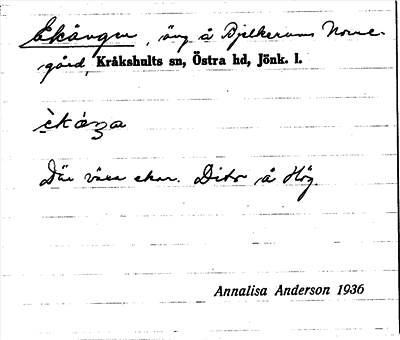 Ekängen, äng å Bjelkerums Norre-
gård, Kråkshults sn, Östra hd, Jönk. l.
Där växa ekar. Ditto å Hög.
Annalisa Anderson 1936